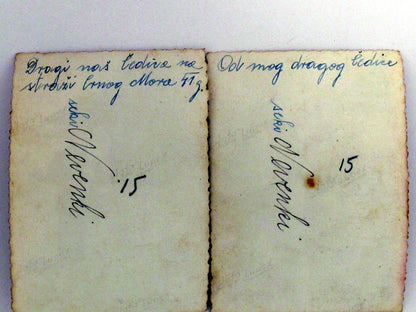 Dragi naš Čedica na
straži Crnog Mora VI g.
seki Nevenki
15
Od mog dragog Čedice
seki Nevenki
15